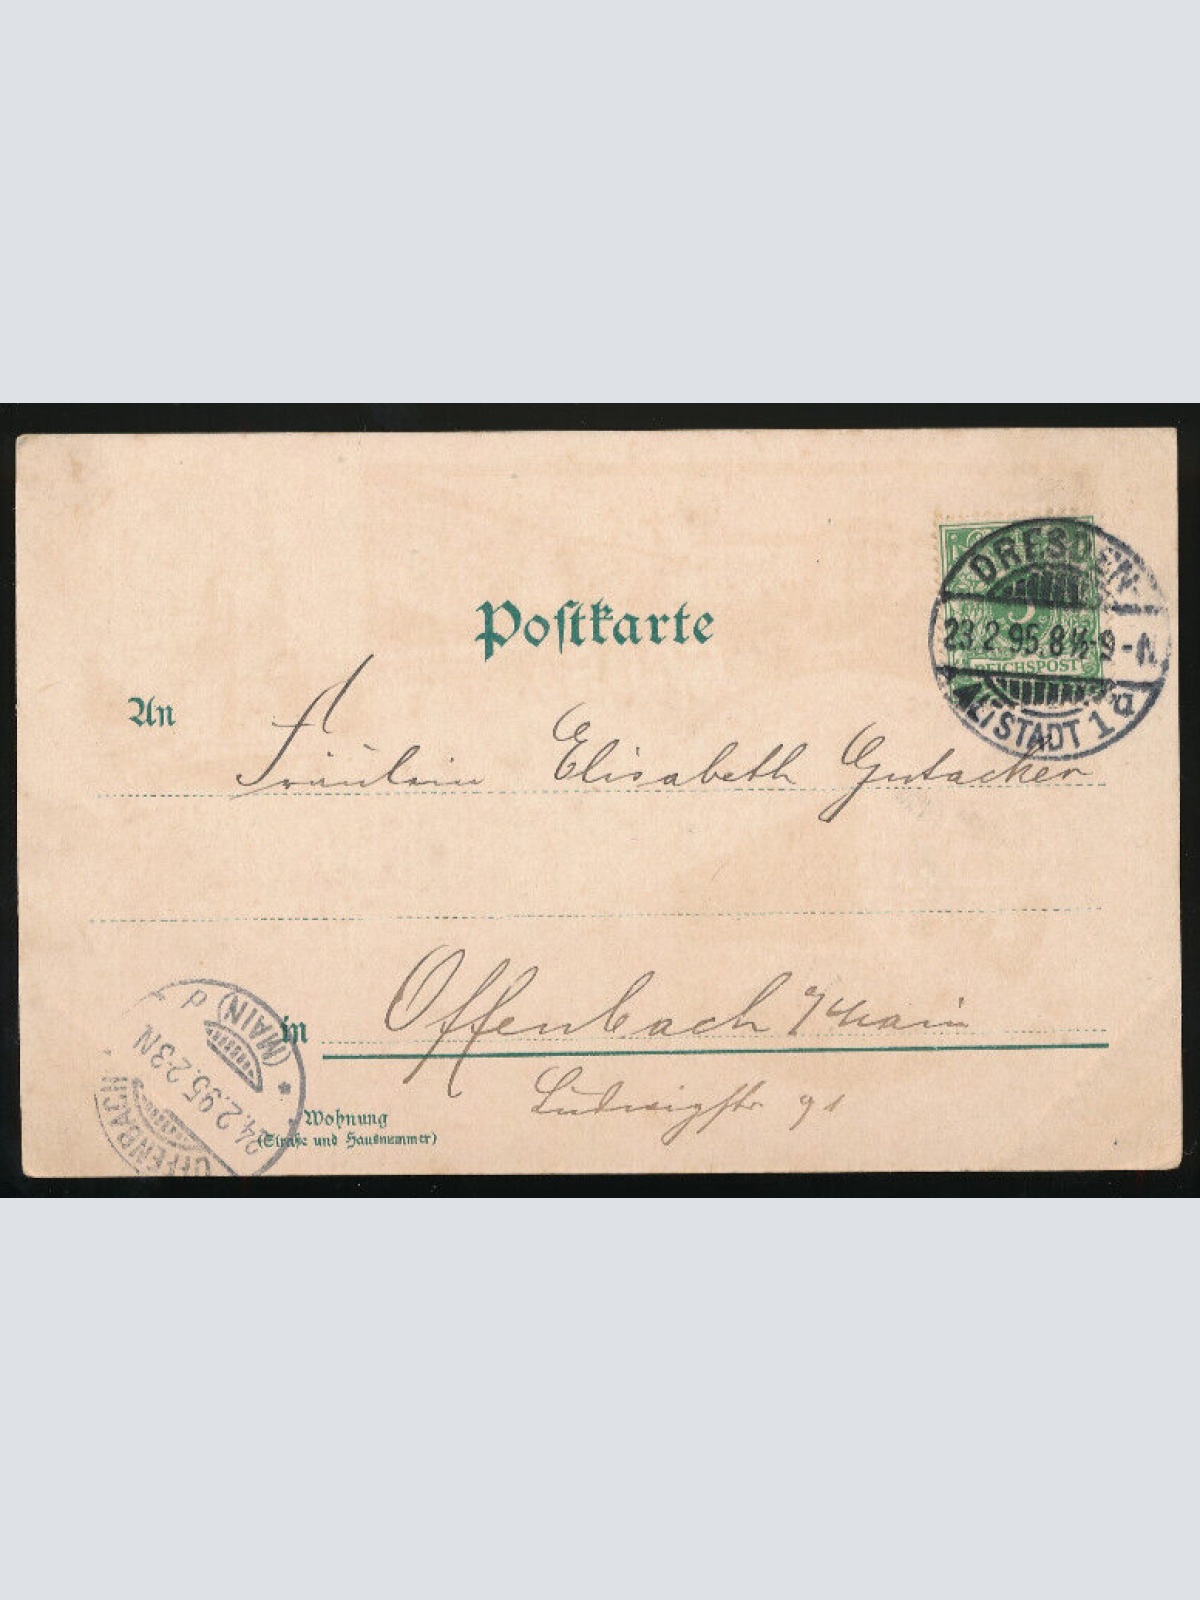 Postkarte
DRESDEN-
23.2.95.8½-9-N.
ALTSTADT 1 a
5
REICHSPOST
An
Fräulein Elisabeth Gutacker
in Offenbach a/Main
Ludwigstr 91
Wohnung
(Straße und Hausnummer)
OFFENBACH
24.2.95.2-3N
(MAIN)